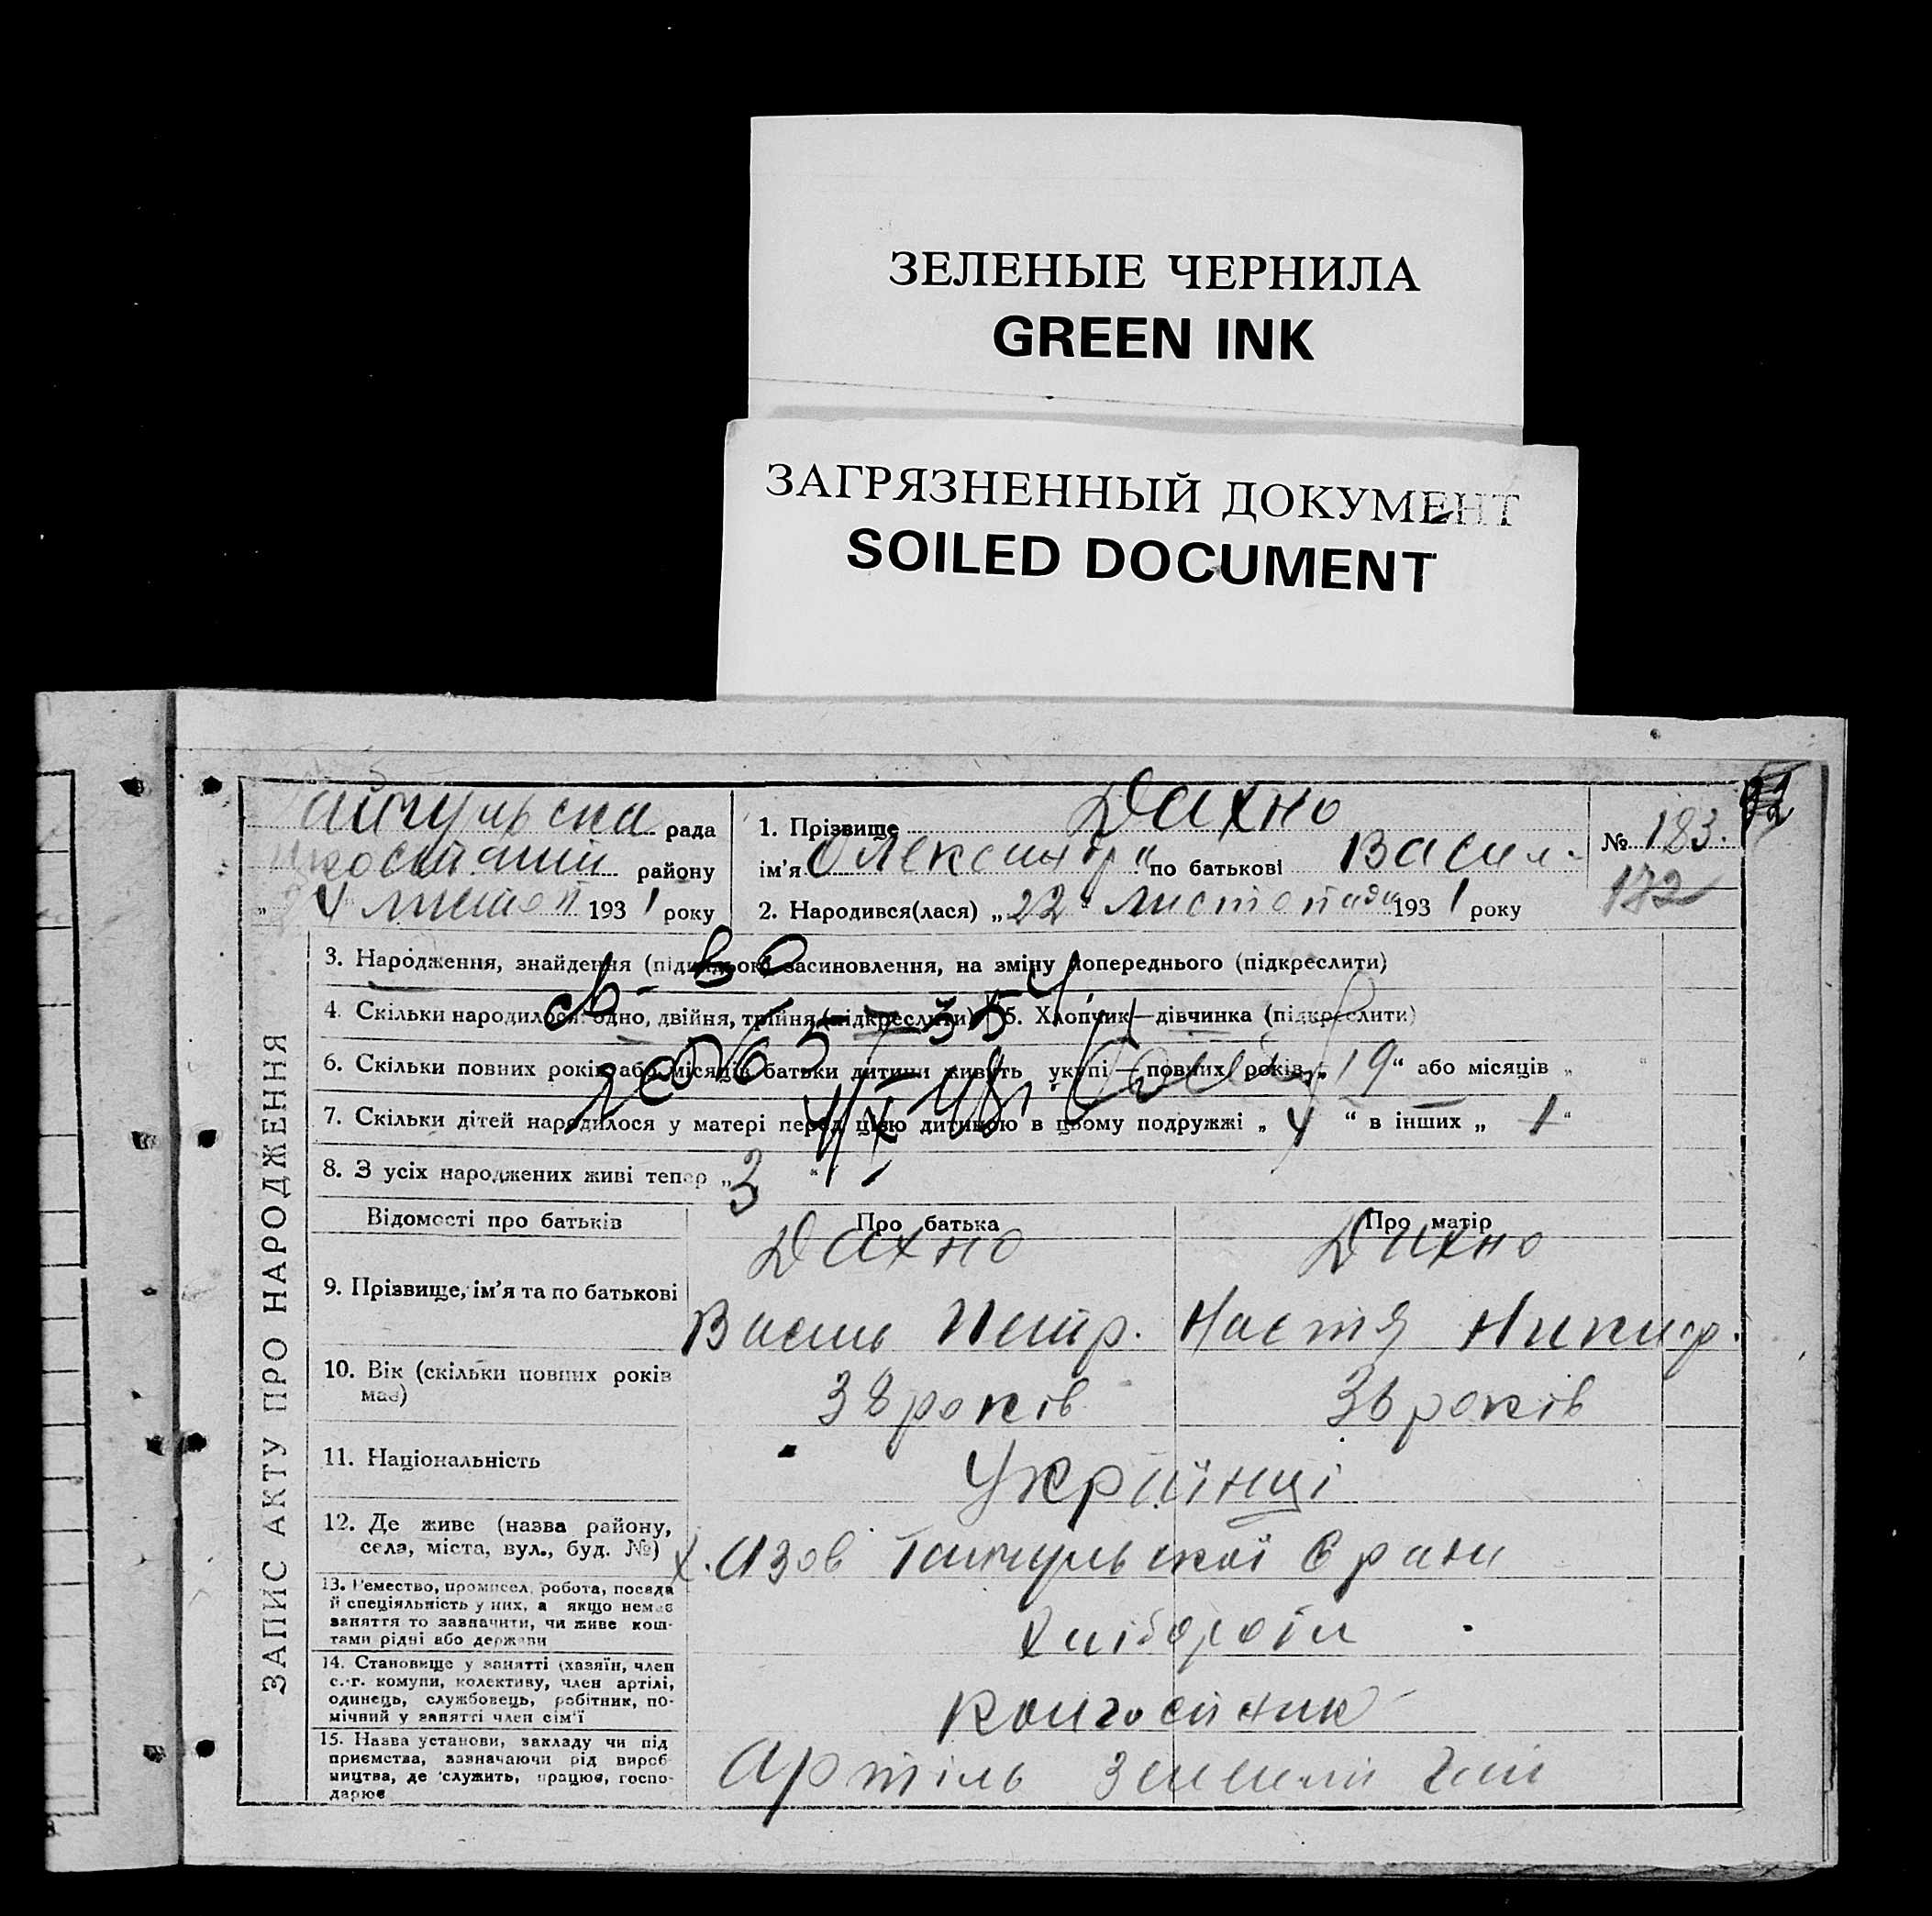 ЗЕЛЕНЫЕ ЧЕРНИЛА
GREEN INK
ЗАГРЯЗНЕННЫЙ ДОКУМЕНТ
SOILED DOCUMENT
ЗАПИС АКТУ ПРО НАРОДЖЕННЯ
рада
району
24 листоп 1931 року
1. Прізвище Дахно
ім'я Олександр по батькові Васил.
2. Народився(лася) „22" листопада 1931 року
№ 183.
172
3. Народження, знайдення (підкидьок) засиновлення, на зміну попереднього (підкреслити)
4. Скільки народилося: одно, двійня, трійня (підкреслити) 5. Хлопчик—дівчинка (підкреслити)
6. Скільки повних років або місяців батьки дитини живуть укупі—повних років „19" або місяців „ "
7. Скільки дітей народилося у матері перед цією дитиною в цьому подружжі „4" в інших „1"
8. З усіх народжених живі тепер „3"
Відомості про батьків Про батька Про матір
9. Прізвище, ім'я та по батькові
Дахно Дахно
Василь Петр. Настя Никиф.
10. Вік (скільки повних років має)
38 років 36 років
11. Національність
Українці
12. Де живе (назва району, села, міста, вул., буд. №)
х. Азов с ради
13. Ремество, промисел, робота, посада
й спеціяльність у них, а якщо немає
заняття то зазначити, чи живе кош-
тами рідні або держави
Хлібороби
14. Становище у занятті (хазяїн, член
с.-г. комуни, колективу, член артілі,
одинець, службовець, робітник, по-
мічний у занятті член сім'ї
Колгоспник
15. Назва установи, закладу чи під
приємства, зазначаючи рід вироб-
ництва, де служить, працює, госпо-
дарює
Артіль Зелений Гай